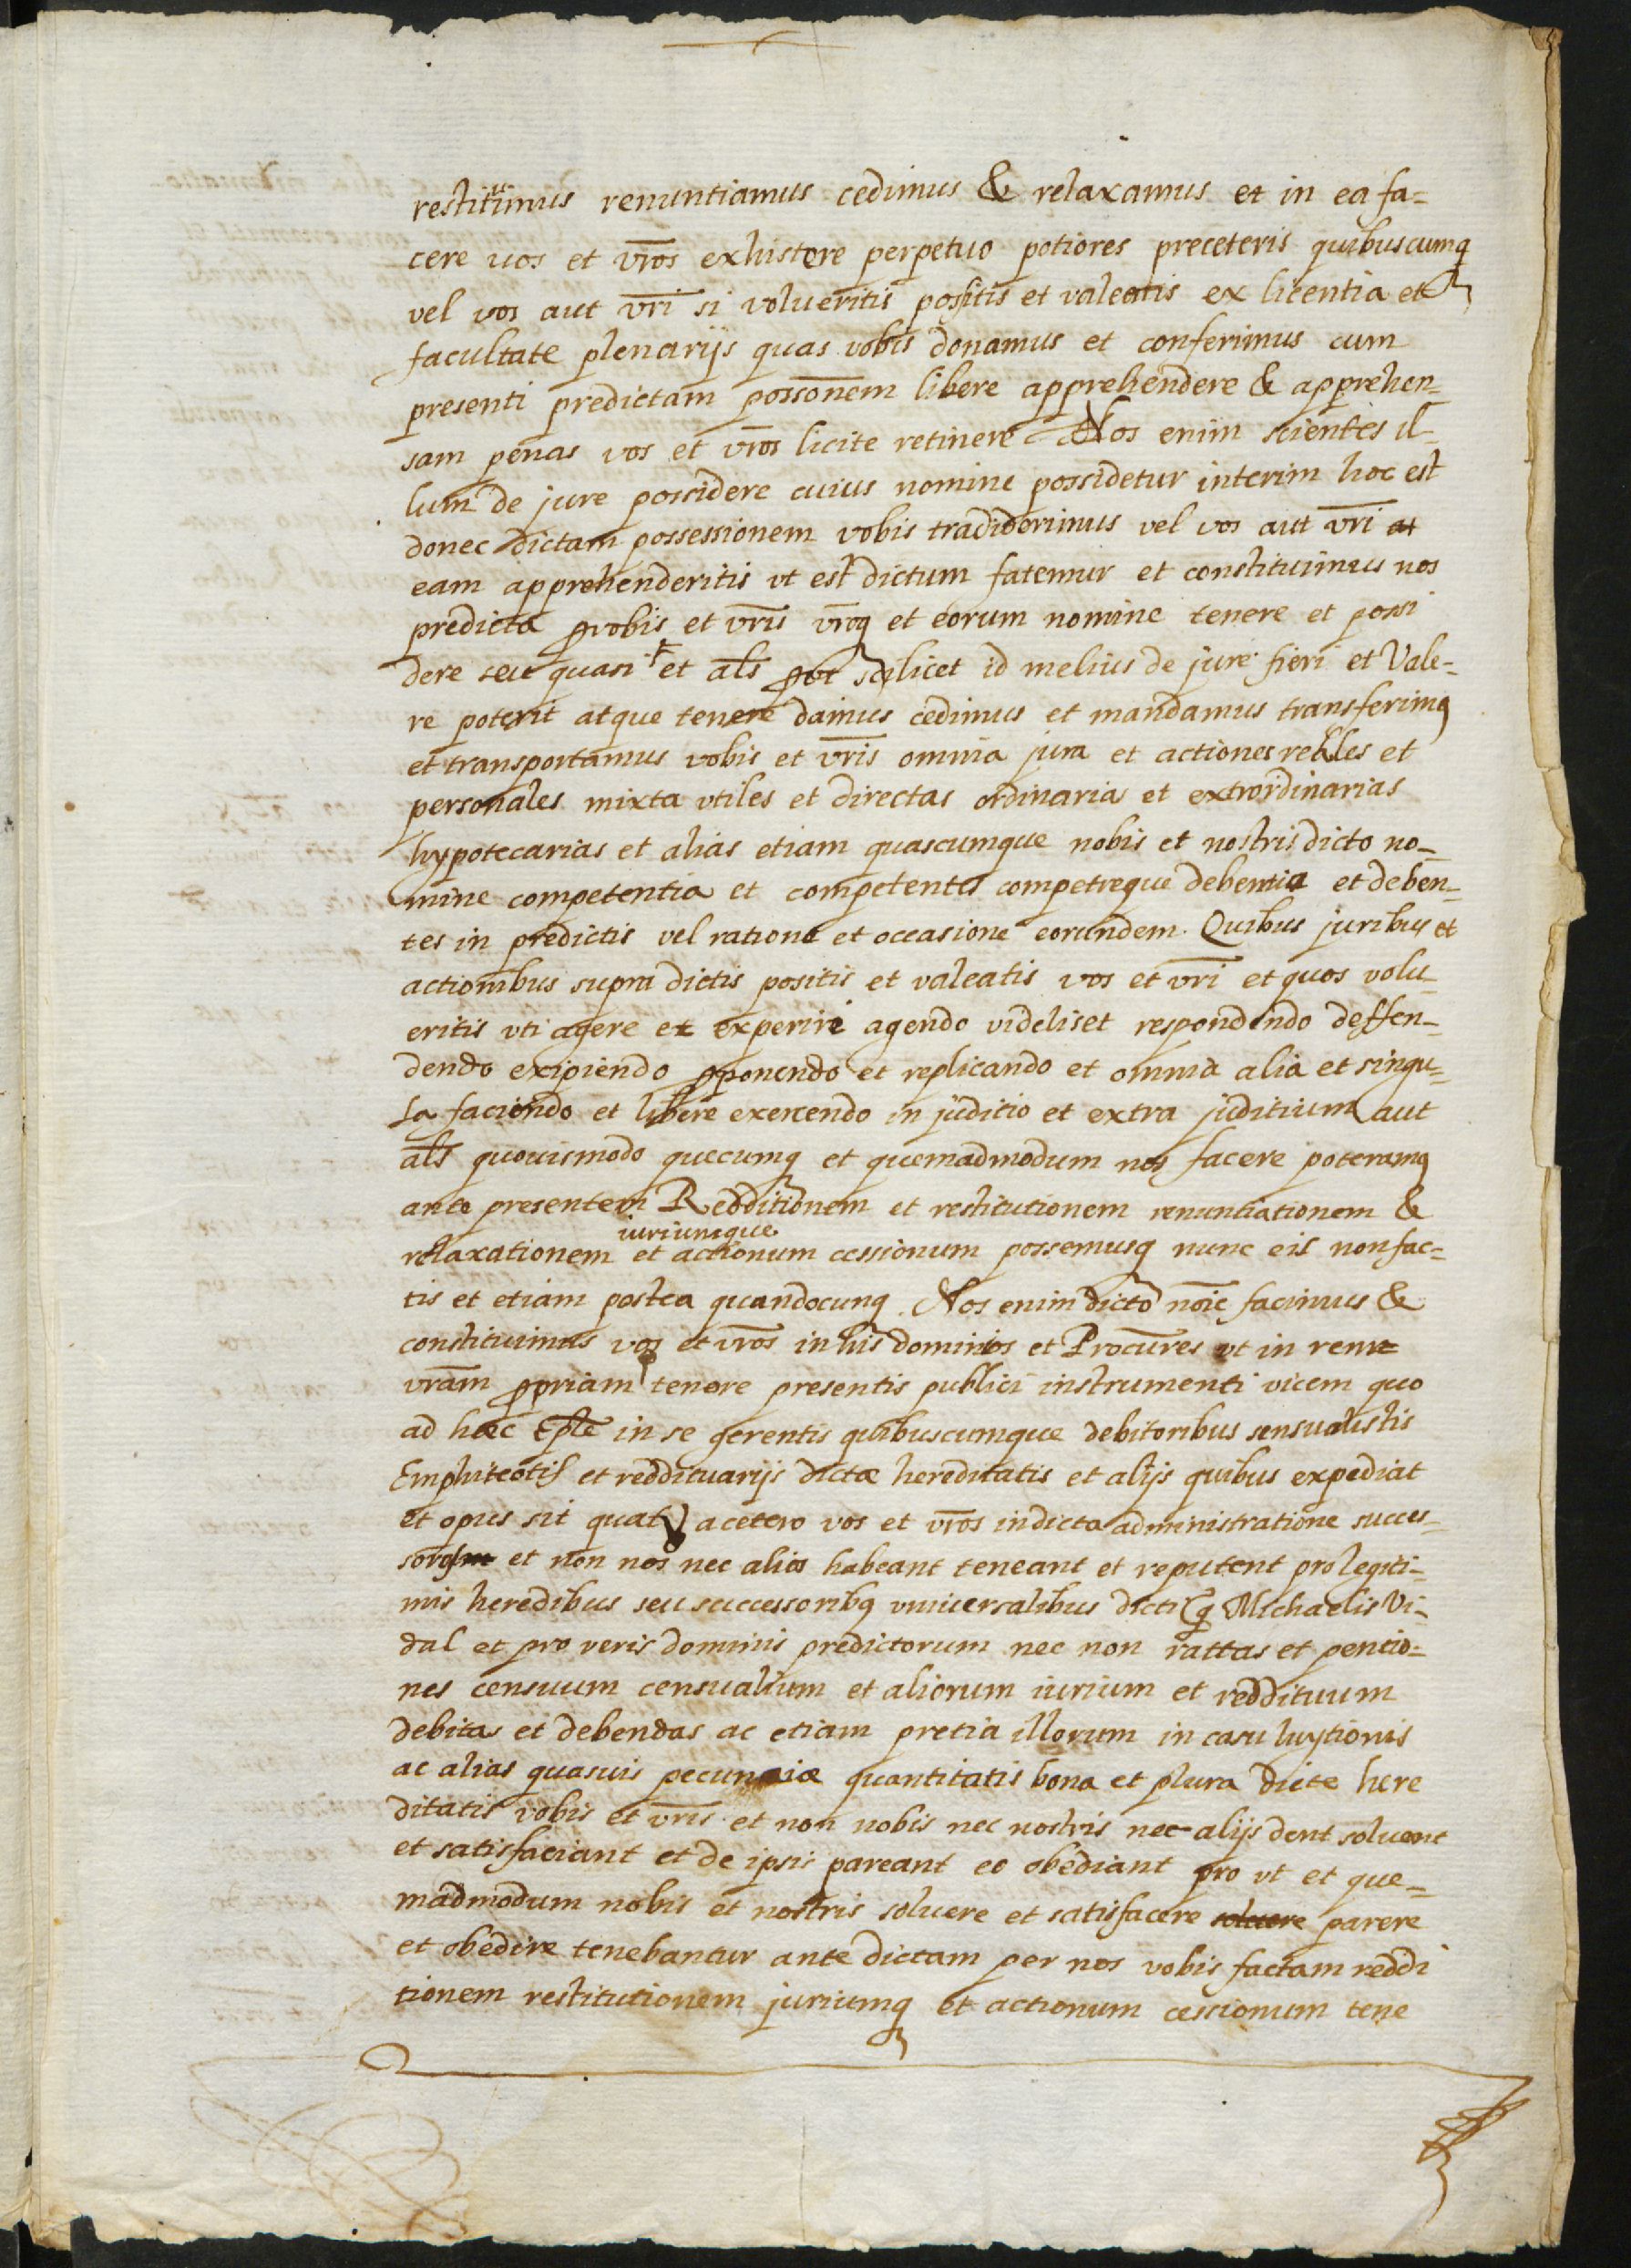 restituimus renuntiamus cedimus & relaxamus et in ea fa=
cere uos et vr̃os exhistere perpetuo potiores preceteris quibuscumq
vel vos aut vr̃i si volueritis positis et valeatis ex licentia et
facultate plenarijs quas vobis donamus et conferimus cum
presenti predictam possõnem libere apprehendere & apprehen=
sam penas vos et vr̃os licite retinere Nos enim scientes il=
lum de jure possidere cuius nomine possidetur interim hoc est
donec dictam possessionem vobis tradiderimus vel vos aut vr̃i
eam apprehenderitis vt est dictum fatemur et constituimus nos
predicta provobis et vr̃is vr̃oq et eorum nomine tenere et possi
dere seu quasi et als̃ prot scilicet id melius de jure fieri et Vale=
re poterit atque tenere damus cedimus et mandamus transferimq
et transportamus vobis et vr̃is omnia jura et actiones reales et
personales mixta vtiles et directas ordinaria et extrordinarias
hypotecarias et alias etiam quascumque nobis et nostris dicto no=
mine competentia et competentes competreque debentia et deben=
tes in predictis vel ratione et occasione eorundem. Quibus juribus et
actionibus supra dictis positis et valeatis vos et vr̃i et quos volu=
eritis vti agere et experiri agendo videliset respondendo deffen=
dendo exipiendo proponendo et replicando et omnia alia et singu=
la faciendo et libere exercendo in juditio et extra juditium aut
als̃ quouismodo quecumq et quemadmodum nos facere poteramq
ante presentem Redditionem et restitutionem renuntiationem &
iuriumque
relaxationem et actionum cessionum possemusq nunc eis non fac=
tis et etiam postea quandocunq. Nos enim dicto nõie facimus &
constituimus vos et vr̃os in his dominos et Procur̃es vt in rem
vr̃am propriam tenore presentis publici instrumenti vicem quo
ad hæc Epl̃e in se gerentis quibuscumque debitoribus sensualistis
Emphiteotis et reddituarijs dictæ hereditatis et alijs quibus expediat
et opus sit quat acetero vos et vr̃os in dicta administratione succes=
et non nos nec alios habeant teneant et reputent pro legiti=
mis heredibus seu successoribq vniuersalibus dicti q Michaelis Vi=
dal et pro veris dominis predictorum nec non rattas et pentio=
nes censuum censualium et aliorum iurium et reddituum
debitas et debendas ac etiam pretia illorum in casu luytionis
ac alias quasuis pecuniæ quantitatis bona et plura dicte here
ditatis vobis et vr̃is et non nobis nec nostris nec alijs dent soluent
et satisfaciant et de ipsis pareant eo obediant pro vt et que=
madmodum nobis et nostris soluere et satisfacere soluere parere
et obedire tenebantur ante dictam per nos vobis factam reddi
tionem restitutionem juriumq et actionum cessionum tene